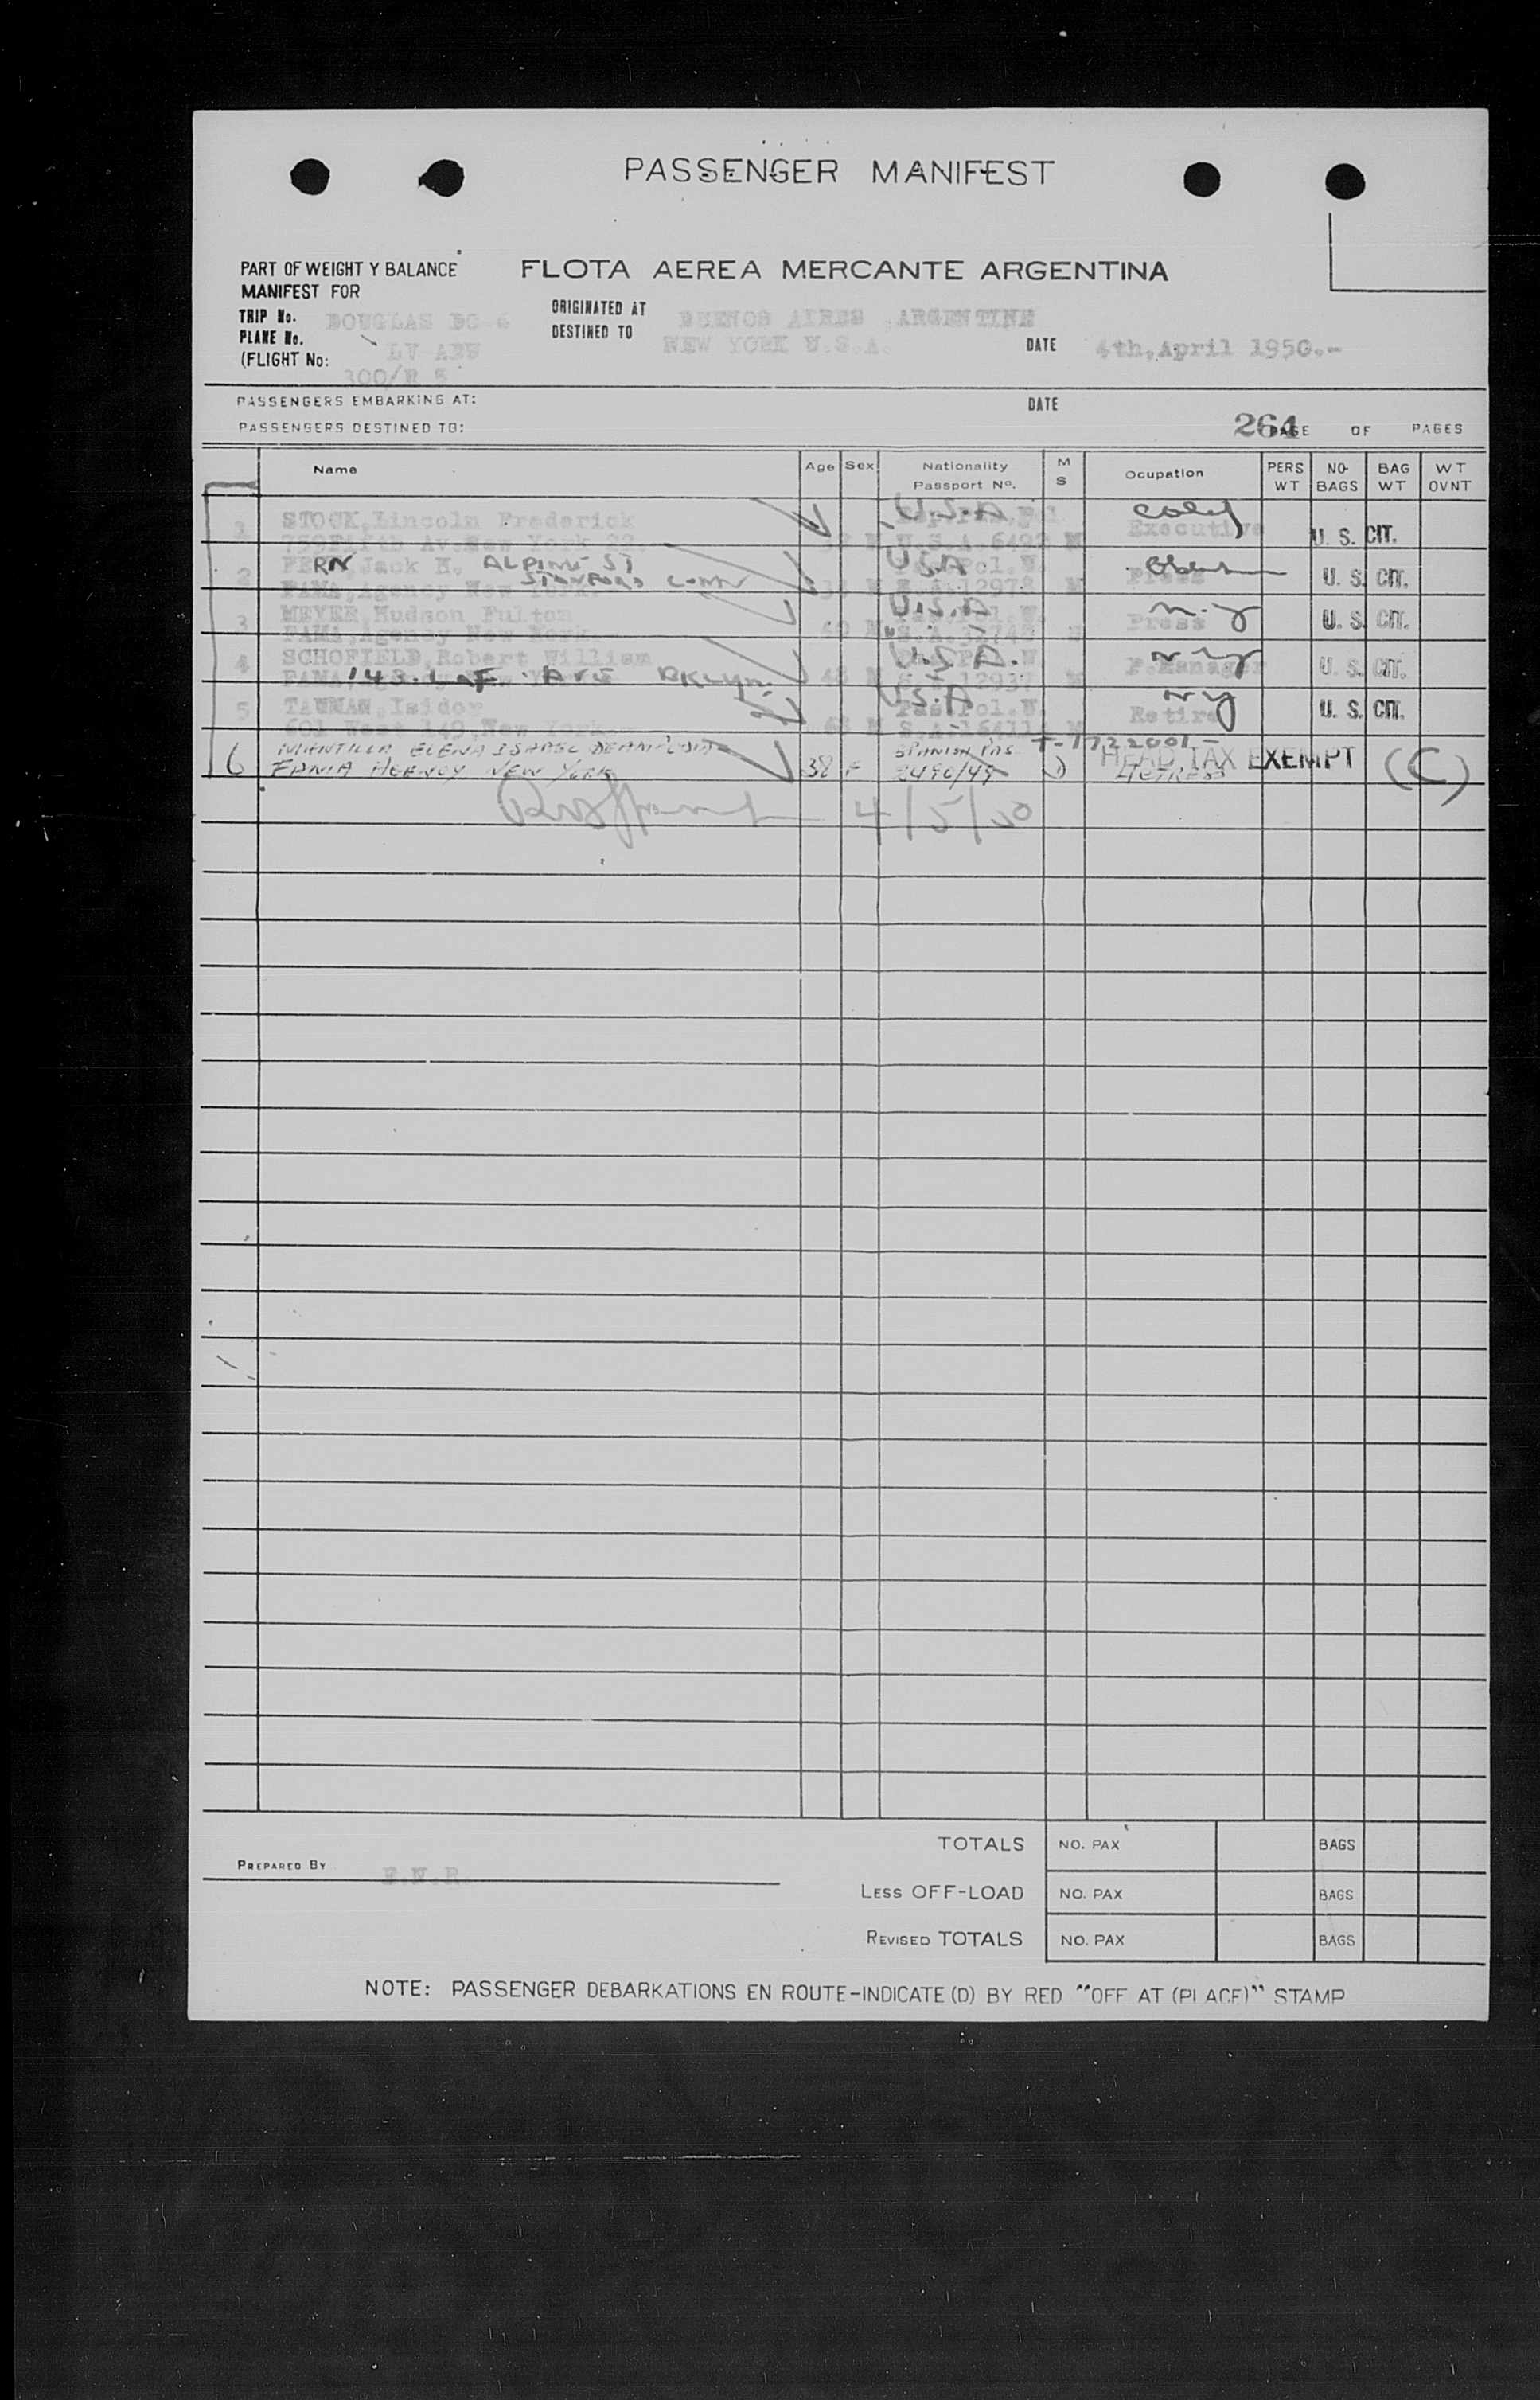 PASSENGER MANIFEST
PART OF WEIGHT Y BALANCE
MANIFEST FOR
FLOTA AEREA MERCANTE ARGENTINA
TRIP No. DOUGLAS DC-6
ORIGINATED AT BUENOS AIRES ,ARGENTINE
PLANE No. LV ADW
DESTINED TO NEW YORK U.S.A.
DATE 4th,April 1950.-
(FLIGHT No: 300/R 5
PASSENGERS EMBARKING AT:
DATE
PASSENGERS DESTINED TO:
264
PAGE OF PAGES
Name Age Sex Nationality Passport No. M S Ocupation PERS WT NO- BAGS BAG WT WT OVNT
1 STOCK,Lincoln Frederick U.S.A
759Fifth Av.New York 22. M U.S.A. M Executive U. S. CIT.
2 FERN Jack H. ALPINE ST U.S.A
STAMFORD CONN
FAMA,Agency New York. M 12978 M Press U. S. CIT.
3 MEYER,Hudson Fulton U.S.A N.Y
FAMA,Agency New York. M Press U. S. CIT.
4 SCHOFIELD,Robert William U.S.A. N Y
143. LAF. AVE BKLYN. 48 M 12937 M P.Manager U. S. CIT.
5 TAUMAN,Isidor U.S.A NY
601 West 149,New York. 68 M M Retire U. S. CIT.
6 MANTILLA ELENA ISABEL SPANISH PAS T-1722001-
FAMA AGENCY NEW YORK 38 F 2490/49 HEAD TAX EXEMPT ACTRESS (C)
4/5/50
TOTALS NO. PAX BAGS
PREPARED BY
LESS OFF-LOAD NO. PAX BAGS
REVISED TOTALS NO. PAX BAGS
NOTE: PASSENGER DEBARKATIONS EN ROUTE-INDICATE (D) BY RED "OFF AT (PLACE)" STAMP